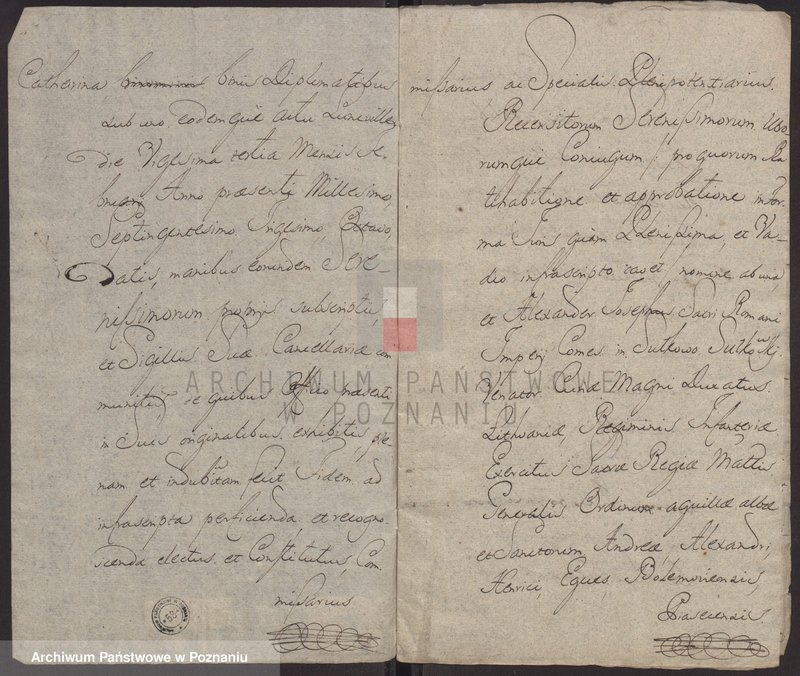 Catherina binis Diplomatibus
sub uno eodemque actu Luneville
die Vigesima tertia Mensis Fe-
bruarij Anno præsenti Millesimo,
Septingentesimo, Trigesimo, Octavo,
Datis, manibus eorundem Sere-
nissimorum proprijs subscriptis,
et Sigillis Suæ Cancellariæ com
munitis, de quibus Officio præsenti
in Suis originalibus exhibitis, ple
nam et indubitam fecit Fidem ad
infrascripta perficienda et recogno
scenda electus et Constitutus, Com
missarius
missarius ac Specialis Plenipotentiarius
Recensitorum Serenissimorum Utro
rumque Coniugum pro quorum Ra
tihabitione et approbatione in for
ma Juris quam Plenissima, et Va-
dio infrascripto cavet nomine ab una,
et Alexander Josephus Sacri Romani
Imperij Comes in Sulkowo Sulkowskj
Venator Curiæ Magni Ducatus
Lithvaniæ, Regiminis Infanteriæ
Exercitus Sacræ Regiæ Mattis
Generalis Ordinum aquillæ albæ
et Sanctorum Andreæ, Alexandri,
Henrici, Eques, Bolemoviensis,
ARCHIWUM PAŃSTWOWE
W POZNANIU
Archiwum Państwowe w Poznaniu